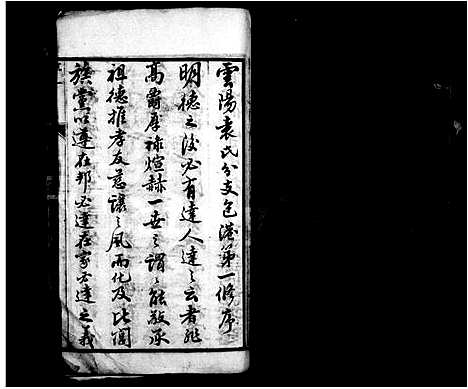 雲陽袁氏分支包港第一修序
明德之後必有達人達之云者非
高爵厚祿煊赫一世之謂謂能敬承
祖德推孝友慈讓之風而化及比閭
族黨以達在邦必達在家必達之義